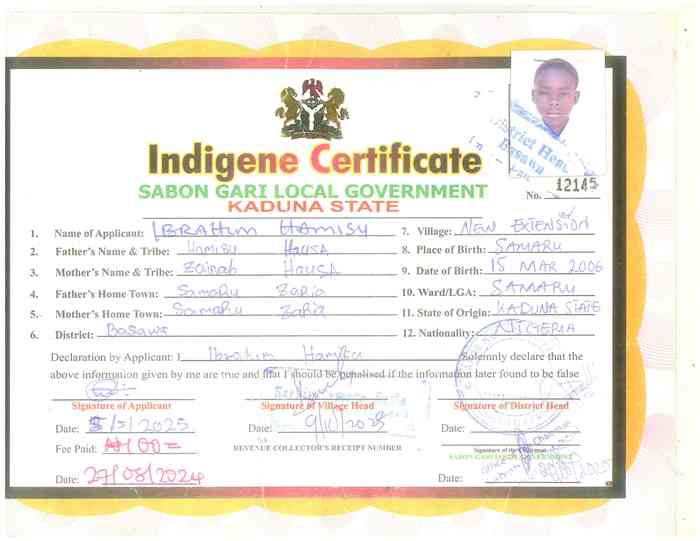 Indigene Certificate
SABON GARI LOCAL GOVERNMENT
KADUNA STATE
District Head
Basawa
No. 12145
1. Name of Applicant: IBRAHIM HAMISU 7. Village: NEW EXTENSION
2. Father's Name & Tribe: HAMISU HAUSA 8. Place of Birth: SAMARU
3. Mother's Name & Tribe: Zainab HAUSA 9. Date of Birth: 15 MAR 2006
4. Father's Home Town: SAMARU ZARIA 10. Ward/LGA: SAMARU
5. Mother's Home Town: SAMARU ZARIA 11. State of Origin: KADUNA STATE
6. District: Basawa 12. Nationality: NIGERIA
Declaration by Applicant: I Ibrahim Hamisu Solemnly declare that the
above information given by me are true and that I should be penalised if the information later found to be false
Signature of Applicant Signature of Village Head Signature of District Head
Date: 5/5/2025 Date: 9/10/2025 Date:
Fee Paid: ₦100=
REVENUE COLLECTOR'S RECEIPT NUMBER
Signature of the Chairman
SABON GARI LOCAL GOVERNMENT
Date: 27/08/2024 Date: